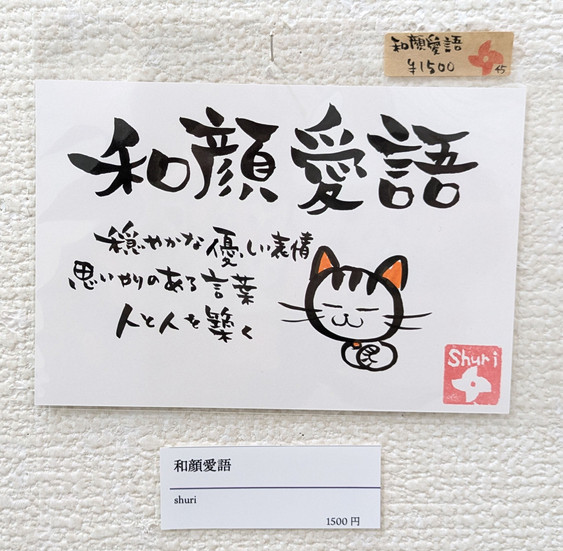 和顔愛語
¥1500
45
和顔愛語
穏やかな優しい表情
思いやりのある言葉
人と人を築く
Shuri
和顔愛語
shuri
1500円